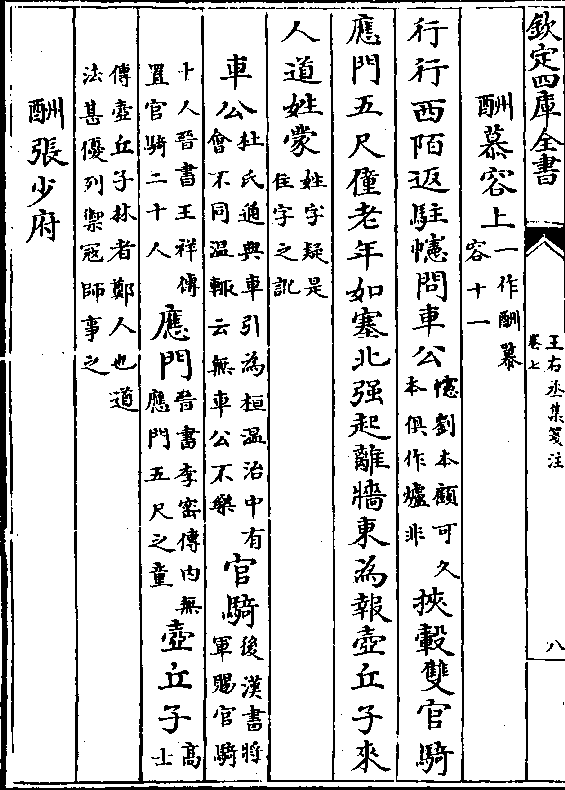 欽定四庫全書
王右丞集箋注
卷七
八
酬慕容上一作酬慕容十一
行行西陌返駐幰問車公幰劉本顧可久本俱作爐非挾轂雙官騎
應門五尺僮老年如塞北强起離牆東為報壺丘子來
人道姓蒙姓字疑是住字之訛
車公杜氏通典車引為桓温治中有會不同温輒云無車公不樂官騎後漢書將軍賜官騎
十人晉書王祥傳置官騎二十人應門晉書李密傳内無應門五尺之童壺丘子高士
傳壺丘子林者鄭人也道法甚優列禦冦師事之
酬張少府